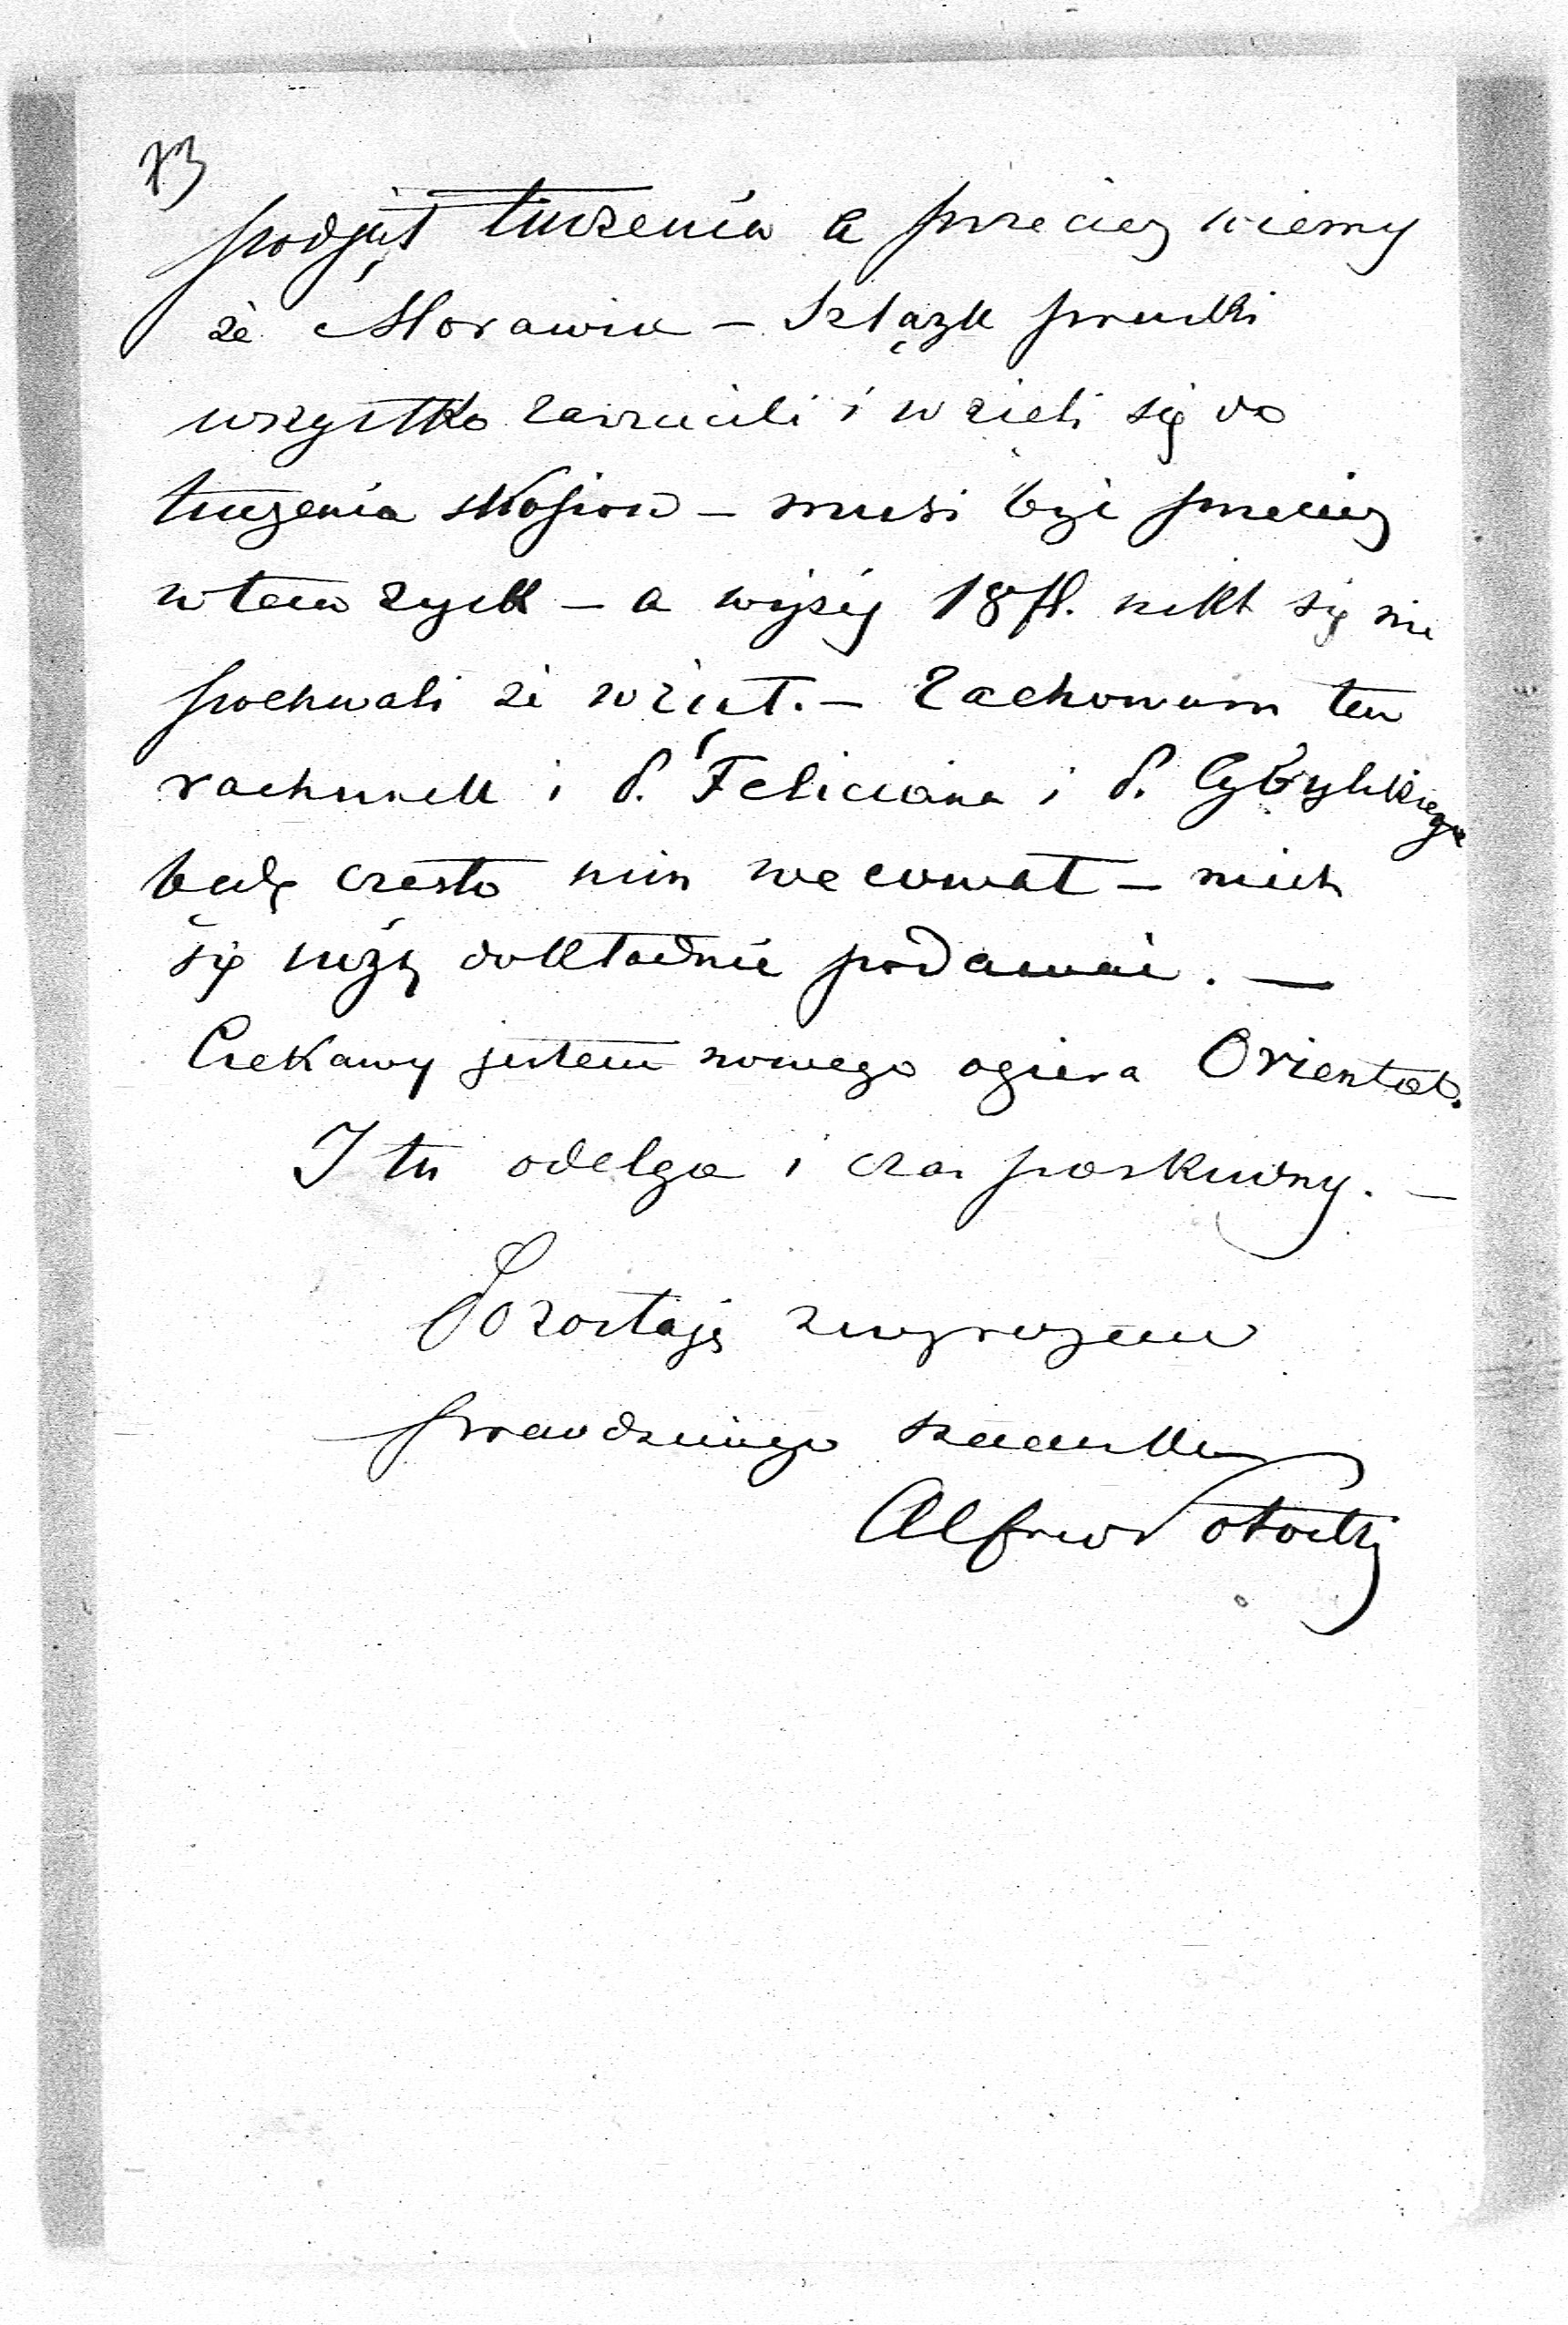 73
podjął tuczenia a przecież wiemy
że Morawia – Szlązk pruski
wszystko zarzucili i wzieli się do
tuczenia skopow – musi być przecież
w tem zysk – a wyżej 18 fl. nikt się nie
pochwali że wziął. – Zachowam ten
rachunek i P. Feliciana i P.
będę często nim – niech
się uczą dokładnie podawać. –
Ciekawy jestem nowego ogiera Oriental.
I tu odelga i czas paskudny. –
Pozostaję z wyrazem
prawdziwego szacunku
Alfred Potocki